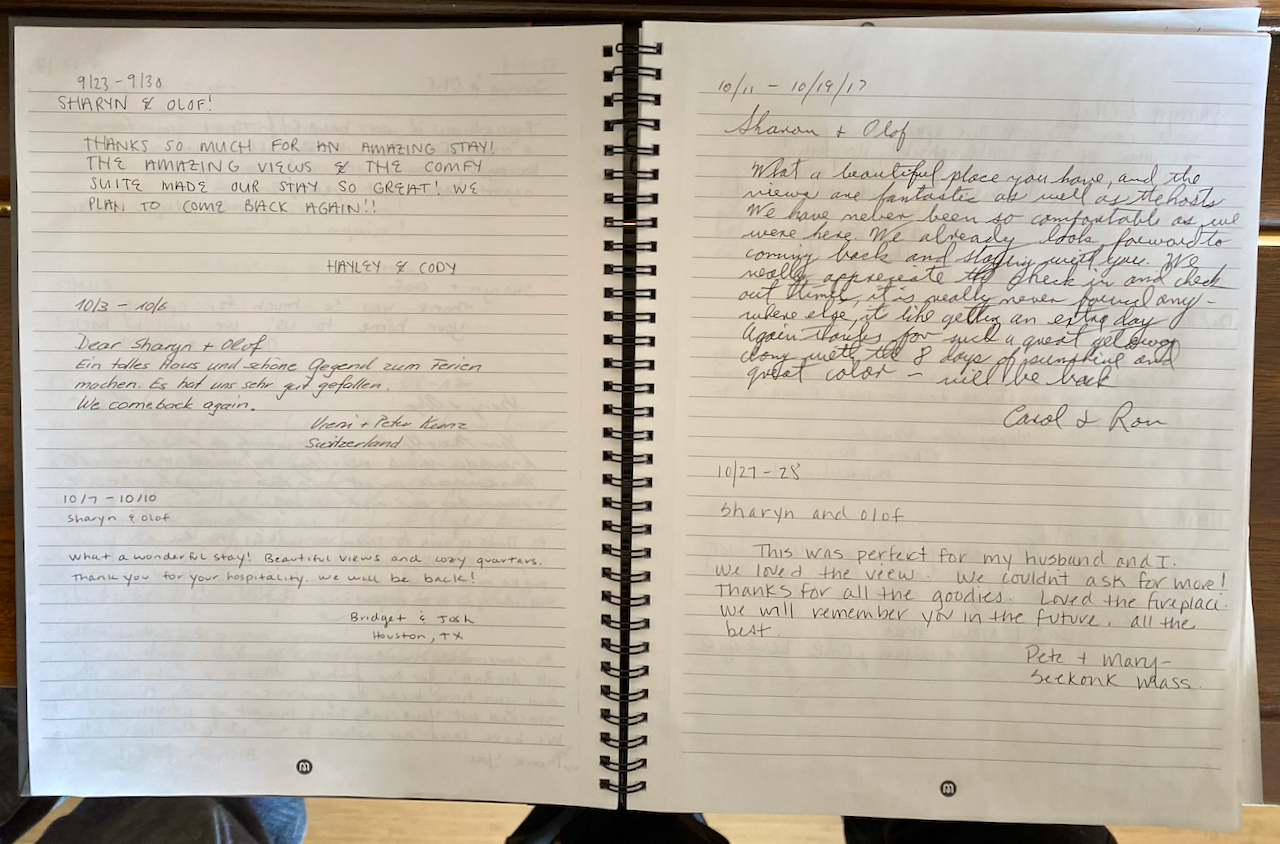 9/23 - 9/30
SHARYN & OLOF!
THANKS SO MUCH FOR AN AMAZING STAY!
THE AMAZING VIEWS & THE COMFY
SUITE MADE OUR STAY SO GREAT! WE
PLAN TO COME BACK AGAIN!!
HAYLEY & CODY
10/3 - 10/6
Dear Sharyn + Olof
Ein tolles Haus und schöne Gegend zum Ferien
machen. Es hat uns sehr gut gefallen.
We comeback again.
Vreni + Peter Kunz
Switzerland
10/7 - 10/10
Sharyn & Olof
What a wonderful stay! Beautiful views and cozy quarters.
Thank you for your hospitality. We will be back!
Bridget & Josh
Houston, TX
10/11 - 10/19/17
Sharon + Olof
What a beautiful place you have, and the
views are fantastic as well as the hosts
We have never been so comfortable as we
were here. We already look forward to
coming back and staying with you. We
really appreciate the check in and check
out times, it is really never found any-
where else, it like getting an extra day
Again thanks for such a great getaway
along with the 8 days of sunshine and
great color - will be back
Carol & Ron
10/27 - 28
Sharyn and Olof
This was perfect for my husband and I.
We loved the view. We couldn't ask for more!
Thanks for all the goodies. Loved the fireplace.
We will remember you in the future. all the
best.
Pete + Mary-
Seekonk Mass.